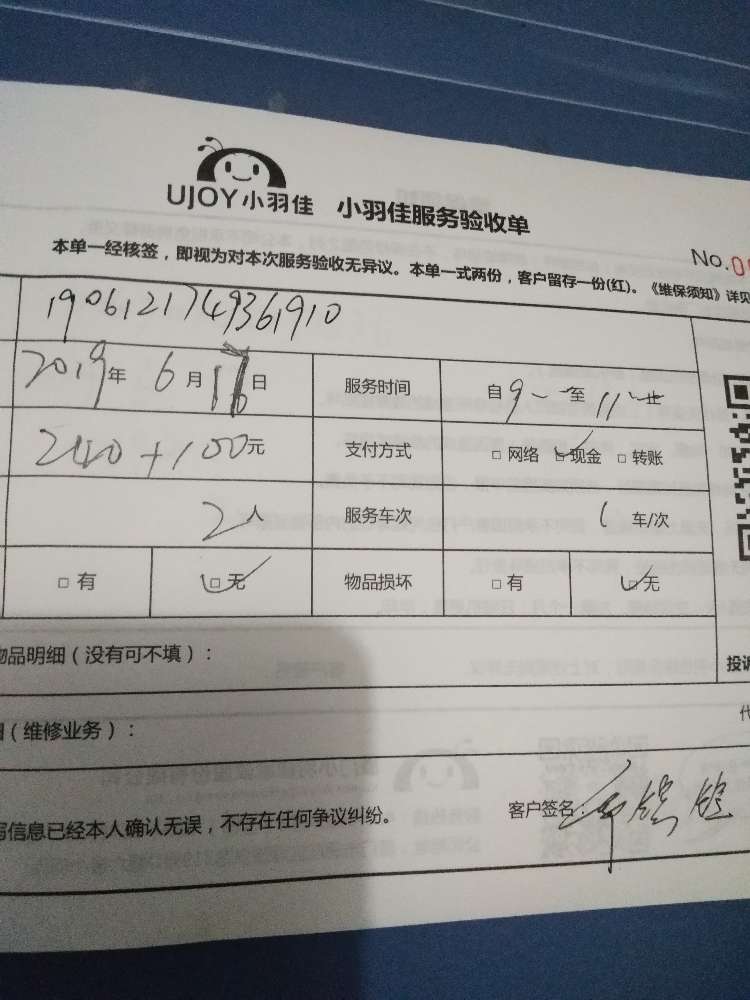 UJOY小羽佳 小羽佳服务验收单
No.0
本单一经核签，即视为对本次服务验收无异议。本单一式两份，客户留存一份(红)。《维保须知》详见
1906121749361910
2019年 6月 日 服务时间 自9 至11
2140+100元 支付方式 □网络 □现金 □转账
2人 服务车次 1车/次
□有 □无 物品损坏 □有 □无
物品明细（没有可不填）：
投诉
（维修业务）：
代
写信息已经本人确认无误，不存在任何争议纠纷。
客户签名: